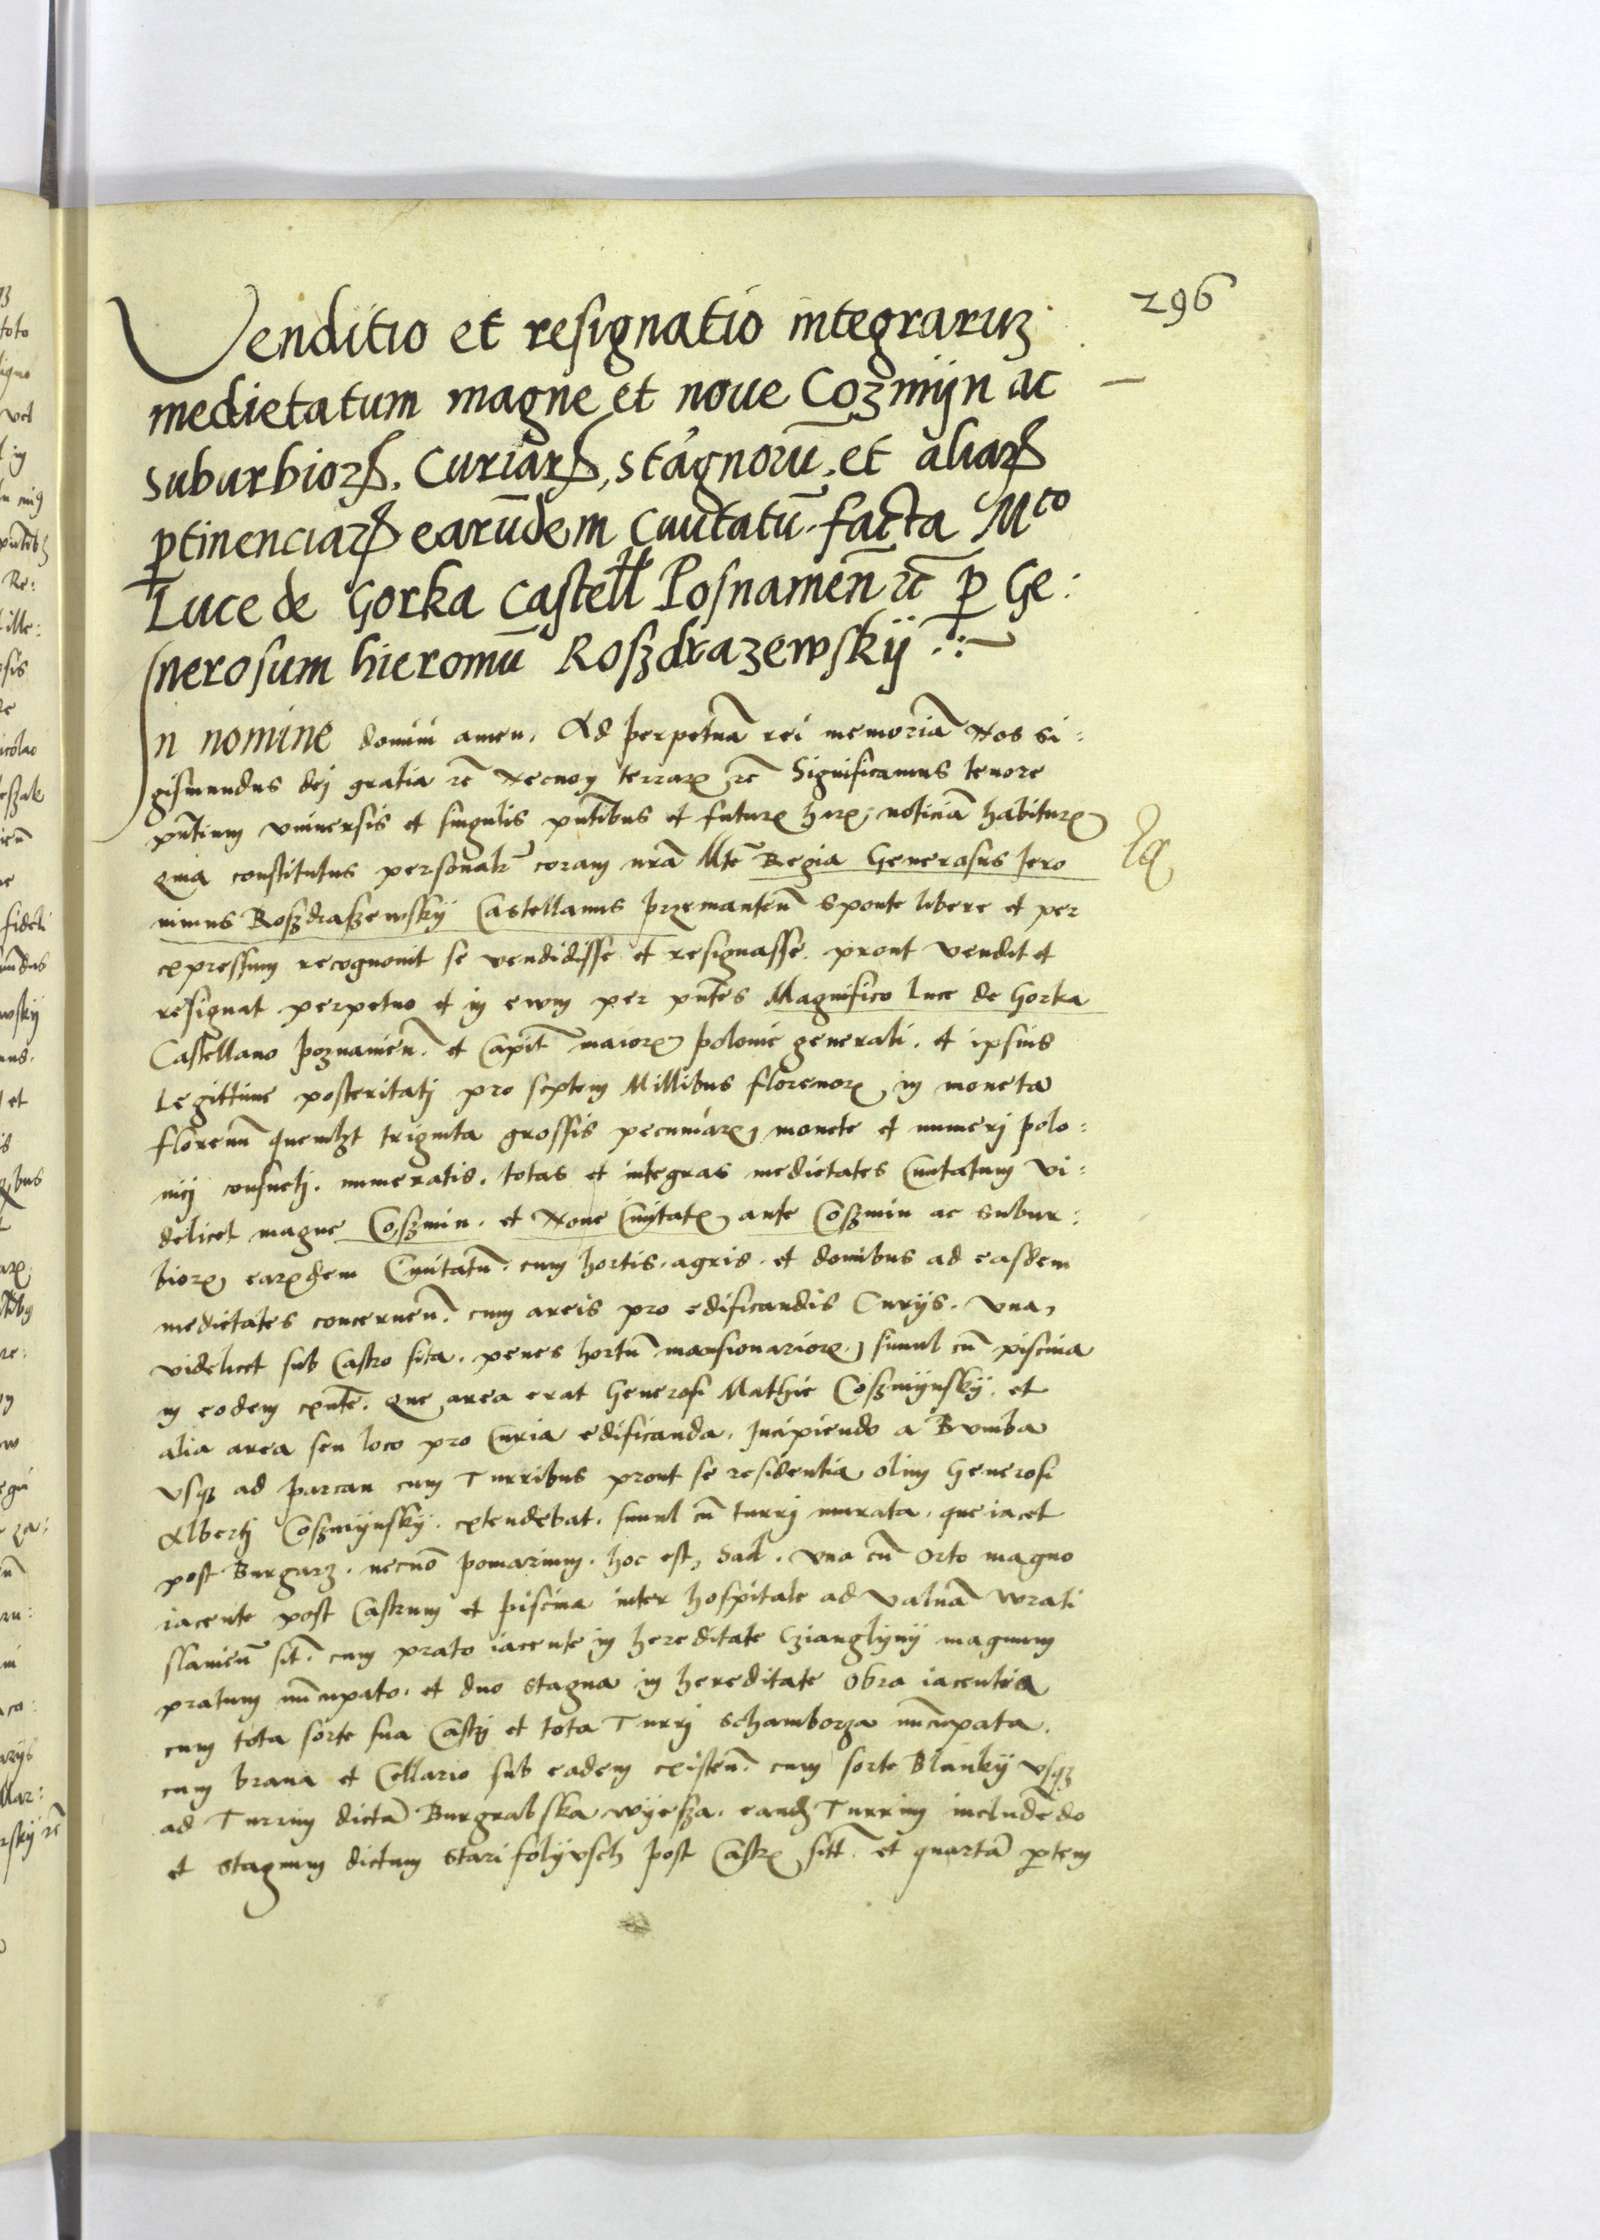 296
Venditio et resignatio integraruʒ
medietatum magne et noue Cozmijn ac
suburbioꝝ. Curiaꝝ, stagnorū. et aliaꝝ
ꝑtinenciaꝝ earūdem Ciuitatū. facta Mco
Luce de Gorka Castell Posnameñ ⁊c̄ ꝑ Ge:
nerosum hieromū Roszdrazewskij
In nomine domini amen. Ad perpetuā rei memoriā Nos Si:
gismundus dej gratia ⁊c̄ Necnoɳ terraꝝ ⁊c̄ Significamus tenore
pn̄tium vniuersis et singulis pn̄tibus et futuꝝ haꝝ noticiā habituꝝ
Quia constitutus personalr̄ coram nr̄a Mte Regia Generosus Jero
nimus Roszdraszewskij Castellanus przemanteñ sponte libere et per
expressum recognouit se vendidisse et resignasse. prout vendit et
resignat perpetuo et in ewm per pn̄tes Magnifico Luce de Gorka
Castellano poznanieñ. et Capit̄ maioꝝ polonie generali. et ipsius
Legittime posteritatj pro septem Millibus florenoꝝ in moneta
florenū quemlꝫt triginta grossis pecuniaꝝ monete et numerj polo:
niej consuetj. numeratis. totas et integras medietates Ciuitatum vi:
delicet magne Coszmin. et Noue Ciuitatꝭ ante Coszmin ac subur:
bioꝝ eaꝝdem Ciuitatū. cum hortis. agris. et domibus ad easdem
medietates concerneñ. cum areis pro edificandis Curijs. Vna,
videlicet sub Castro sita. penes hortū mansionarioꝝ, simul cū piscina
in eodem exn̄te. Que area erat Generosi Mathie Coszmijnskij. et
alia area seu loco pro Curia edificanda. Incipiendo a Bumba
vsqꝫ ad parcan cum Turribus prout se residentia olim Generosi
Albertj Coszmijnskij. extendebat. simul cū turrj murata. que iacet
post Burgarz. necnō pomarium. hoc est, Sad. vna cū orto magno
iacente post Castrum et piscina inter hospitale ad Valuā wrati
slauieñ sit̄. cum prato iacente in hereditate Czianglijnij magnum
pratum nūcupato. et duo stagna in hereditate Obra iacentia
cum tota sorte sua Castrj et tota Turrj Schamborza nūcupata.
cum brana et Cellario sub eadem existeñ. cum sorte Blankij vsqꝫ
ad Turrim dictā Burgrabska wijesza. eandē Turrim includēdo
et stagnum dictum Stari folijvsch post Castꝝ sitt̄. et quartā ꝑtem